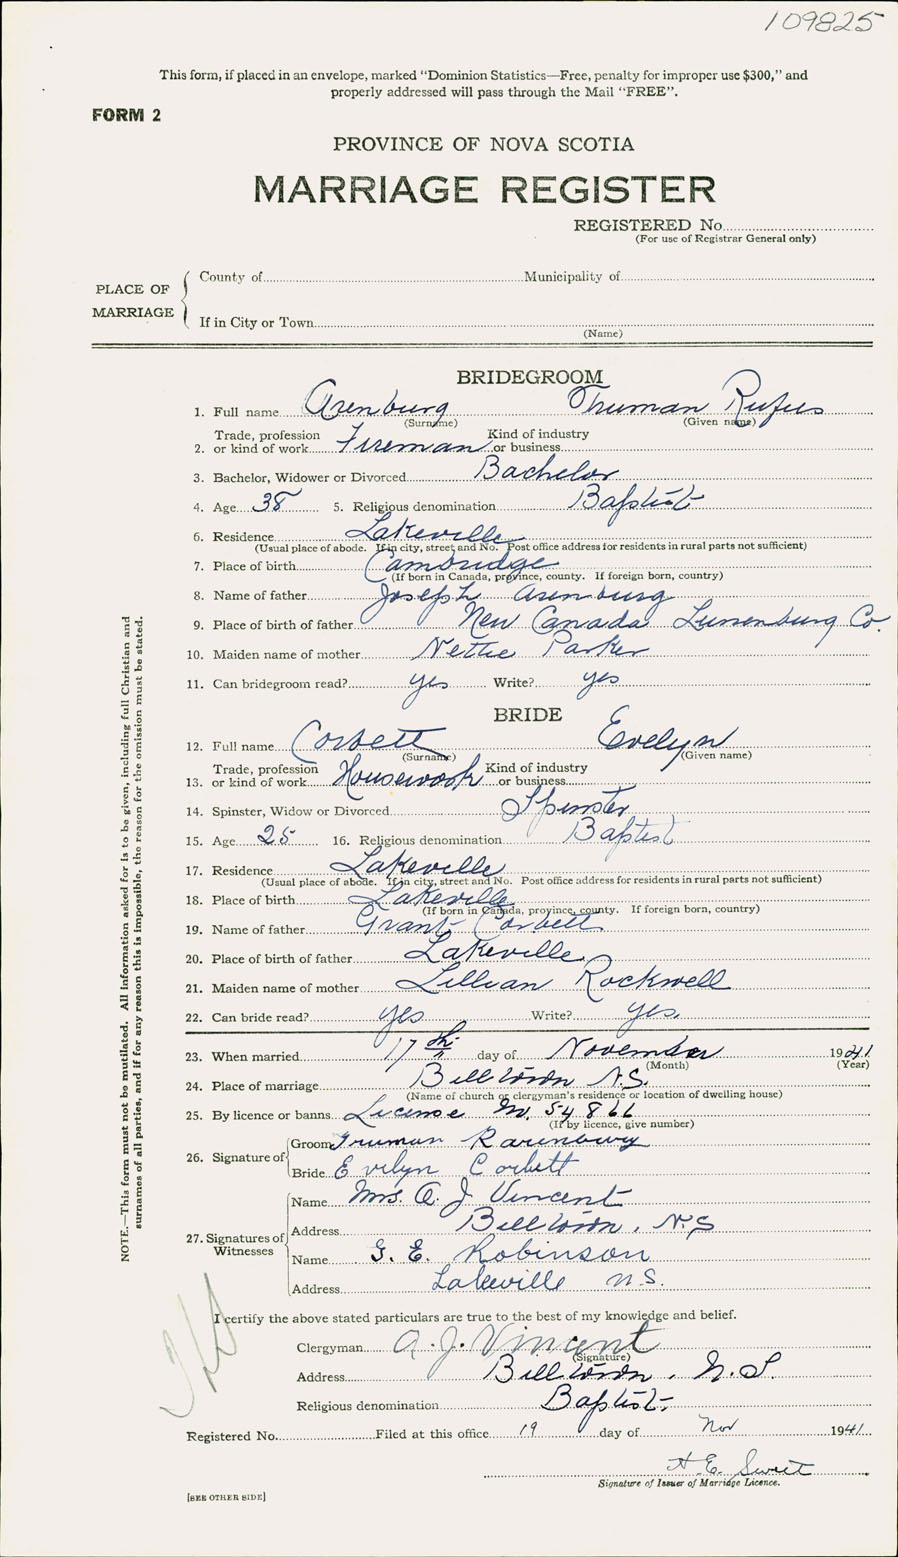 109825
This form, if placed in an envelope, marked "Dominion Statistics—Free, penalty for improper use $300," and
properly addressed will pass through the Mail "FREE".
FORM 2
PROVINCE OF NOVA SCOTIA
MARRIAGE REGISTER
REGISTERED No.
(For use of Registrar General only)
PLACE OF MARRIAGE
County of Municipality of
If in City or Town
(Name)
BRIDEGROOM
1. Full name Arenburg Thuman Rufus
(Surname) (Given name)
2. Trade, profession or kind of work Fireman Kind of industry or business
3. Bachelor, Widower or Divorced Bachelor
4. Age 38 5. Religious denomination Baptist
6. Residence Lakeville
(Usual place of abode. If in city, street and No. Post office address for residents in rural parts not sufficient)
7. Place of birth Cambridge
(If born in Canada, province, county. If foreign born, country)
8. Name of father Joseph Arenburg
9. Place of birth of father New Canada Lunenburg Co.
10. Maiden name of mother Nettie Parker
11. Can bridegroom read? yes Write? yes
BRIDE
12. Full name Corbett Evelyn
(Surname) (Given name)
13. Trade, profession or kind of work Housework Kind of industry or business
14. Spinster, Widow or Divorced Spinster
15. Age 25 16. Religious denomination Baptist
17. Residence Lakeville
(Usual place of abode. If in city, street and No. Post office address for residents in rural parts not sufficient)
18. Place of birth Lakeville
(If born in Canada, province, county. If foreign born, country)
19. Name of father Grant Corbett
20. Place of birth of father Lakeville
21. Maiden name of mother Lillian Rockwell
22. Can bride read? yes Write? yes.
23. When married 17th day of November 1941
(Month) (Year)
24. Place of marriage Billtown N.S.
(Name of church or clergyman's residence or location of dwelling house)
25. By licence or banns License No. 54866
(If by licence, give number)
26. Signature of
Groom Truman Rarenburg
Bride Evelyn Corbett
27. Signatures of Witnesses
Name Mrs. A. J. Vincent
Address Billtown, N.S
Name G. E. Robinson
Address Lakeville N.S.
I certify the above stated particulars are true to the best of my knowledge and belief.
Clergyman A. J. Vincent
(Signature)
Address Billtown, N.S.
Religious denomination Baptist
Registered No. Filed at this office 19 day of Nov 1941
H. E. Sweet
Signature of Issuer of Marriage Licence.
[SEE OTHER SIDE]
NOTE.—This form must not be mutilated. All information asked for is to be given, including full Christian and
surnames of all parties, and if for any reason this is impossible, the reason for the omission must be stated.